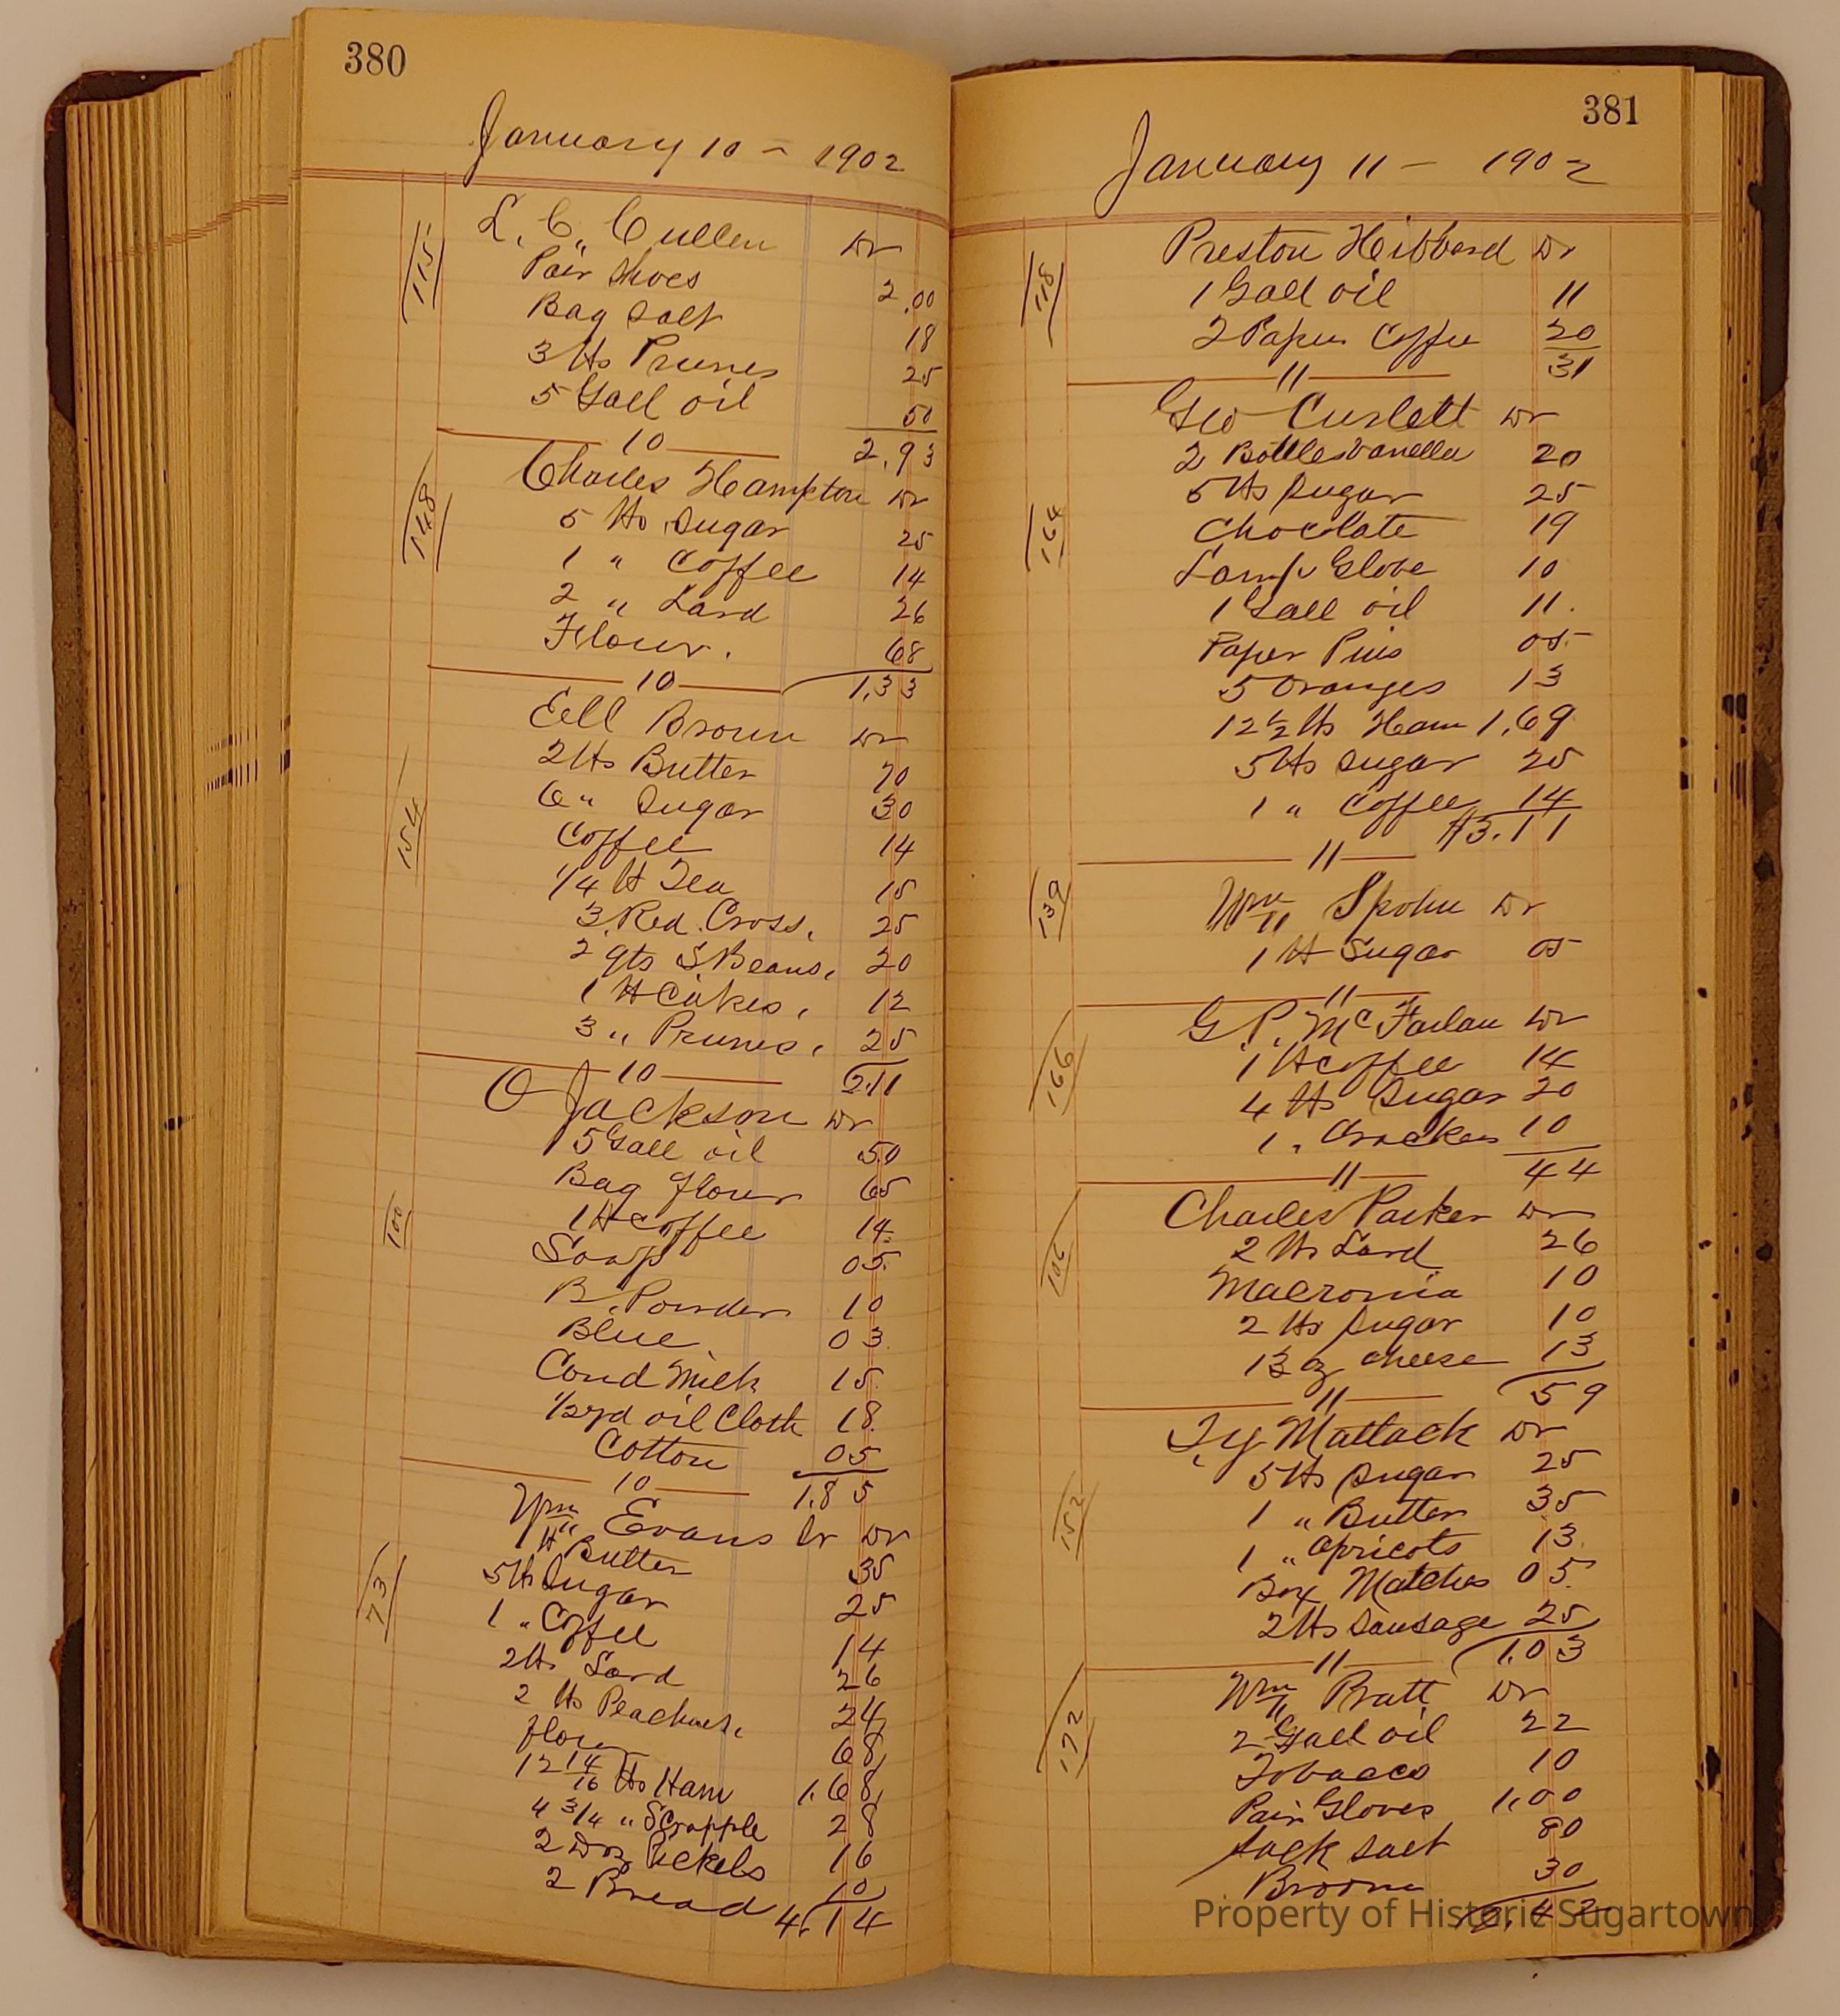 380
January 10 - 1902
L. C. Cullen Dr
115
Pair Shoes 2.00
Bag Salt 18
3 lbs Prunes 25
5 Gall oil 50
10 2.93
Charles Hampton Dr
148
5 lbs Sugar 25
1 " Coffee 14
2 " Lard 26
Flour. 68
10 1.33
Ell Brown Dr
2 lbs Butter 70
6 " Sugar 30
154
Coffee 14
1/4 lb Tea 15
3 Red Cross. 25
2 qts S. Beans. 20
1 lb Cakes. 12
3 " Prunes. 25
10 2.11
O Jackson Dr
5 Gall oil 50
Bag Flour 65
100
1 lb Coffee 14
Soap 05
B. Powder 10
Blue 03
Cond Milk 15
1/2 yd oil Cloth 18
Cotton 05
10 1.85
Wm Evans Dr
1 lb Butter 35
73
5 lb Sugar 25
1 " Coffee 14
2 lbs Lard 26
2 lbs Peaches. 24
flour 68
12 14/16 lbs Ham 1.68
4 3/4 " Scrapple 28
2 Doz Pickels 16
2 Bread 10
4.14
381
January 11 - 1902
Preston Hibberd Dr
118
1 Gall oil 11
2 Paper Coffee 20
31
11
Geo Curlett Dr
2 Bottles Vanella 20
5 lbs Sugar 25
164
Chocolate 19
Lamp Globe 10
1 Gall oil 11.
Paper Pins 05
5 Oranges 13
12 1/2 lbs Ham 1.69
5 lbs Sugar 25
1 " Coffee 14
$3.11
11
139
Wm Spohn Dr
1 lb Sugar 05
11
G. P. McFarlan Dr
166
1 lb coffee 14
4 lbs Sugar 20
1 " Crackers 10
11 44
Charles Parker Dr
106
2 lbs Lard 26
Macronia 10
2 lbs Sugar 10
13 oz cheese 13
11 59
Mattack Dr
5 lbs Sugar 25
152
1 " Butter 35
1 " Apricots 13
Box Matches 05
2 lbs Sausage 25
11 1.03
Wm Pratt Dr
172
2 Gall oil 22
Tobacco 10
Pair Gloves 1.00
Sack Salt 80
Broom 30
2.42
Property of Historic Sugartown